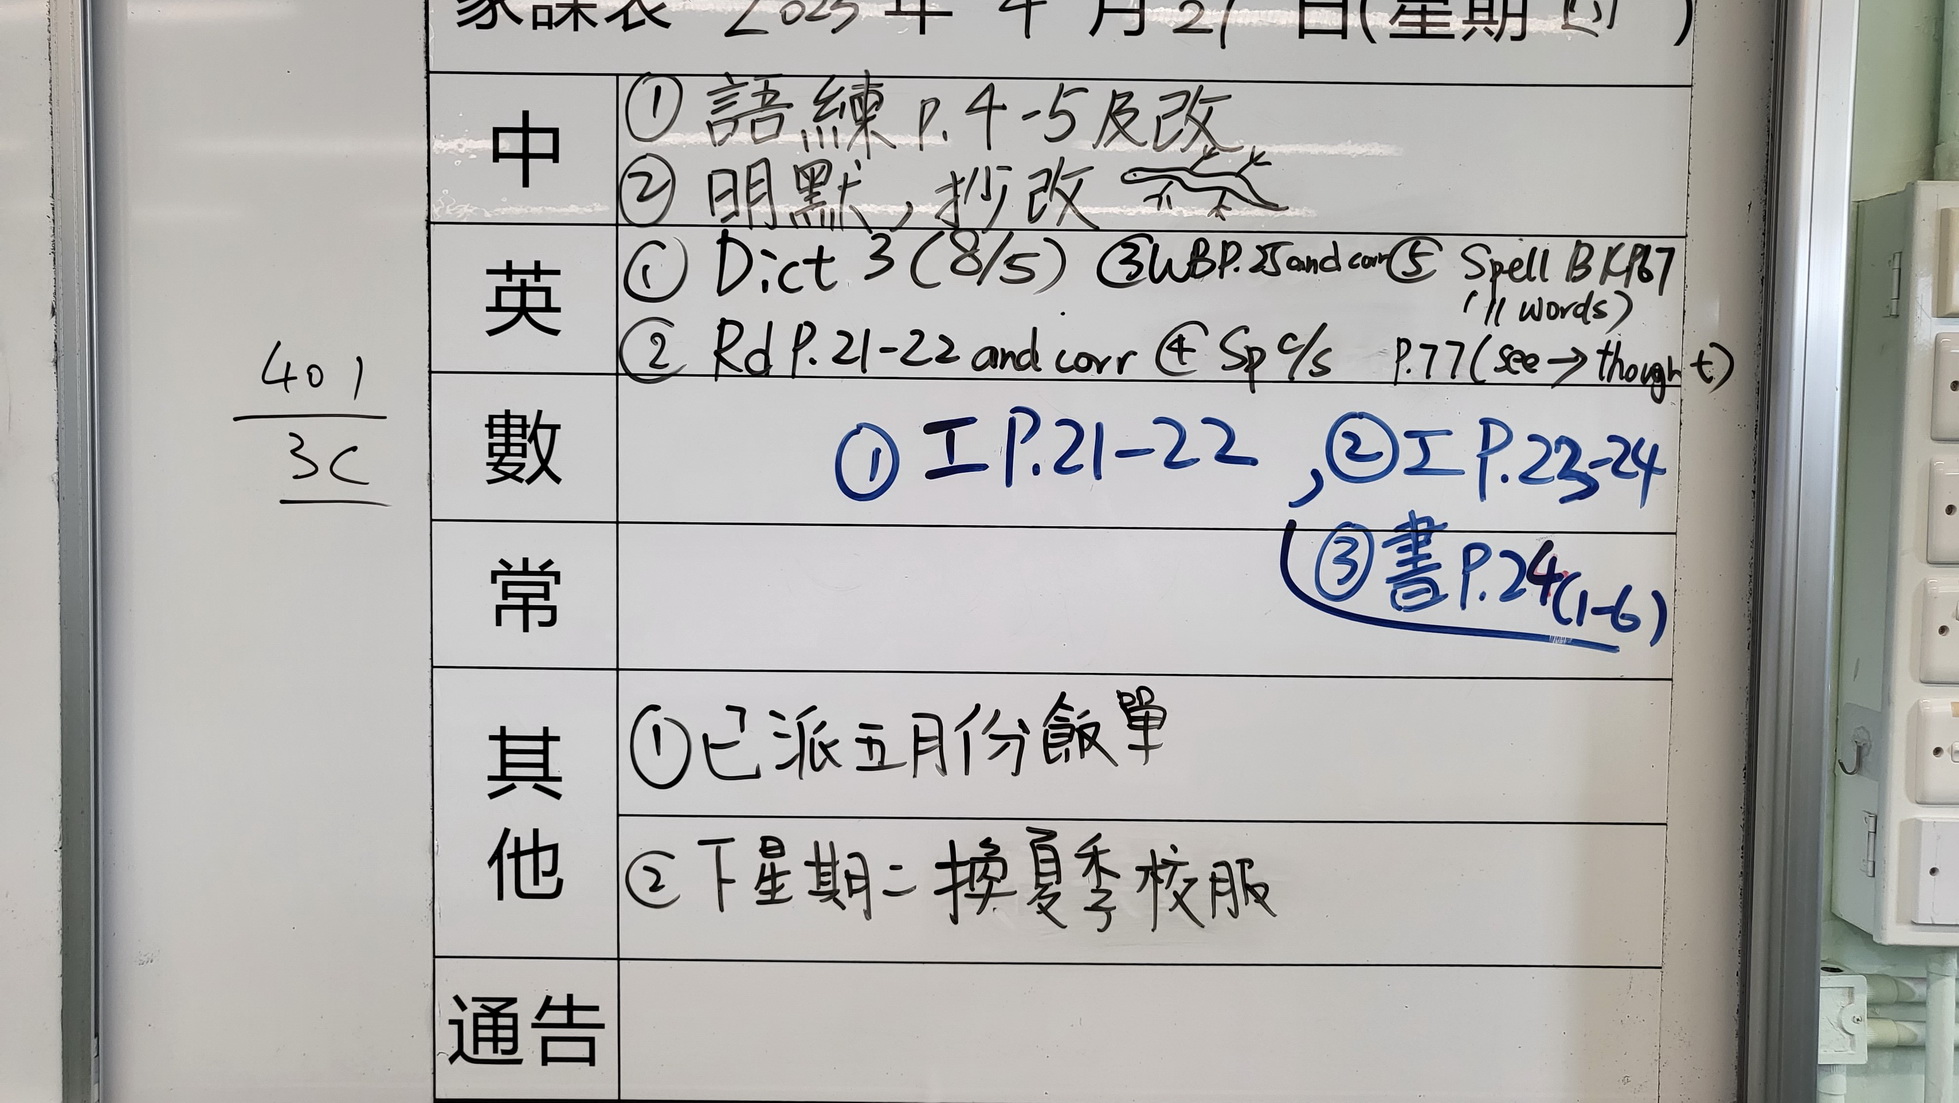 家課表 2025 年 4 月 日(星期 )
中
① 語練 p.4-5及改
② 明默，抄改
英
① Dict 3 (8/5) ③WBP.25and corr⑤ Spell BK
(11 words)
② Rd P.21-22 and corr ④ Sp c/s P.77(see→thought)
401
3C
數
① 工P.21-22 ,②工P.23-24
③書P.24(1-6)
常
其他
①已派五月份飯單
②下星期二換夏季校服
通告